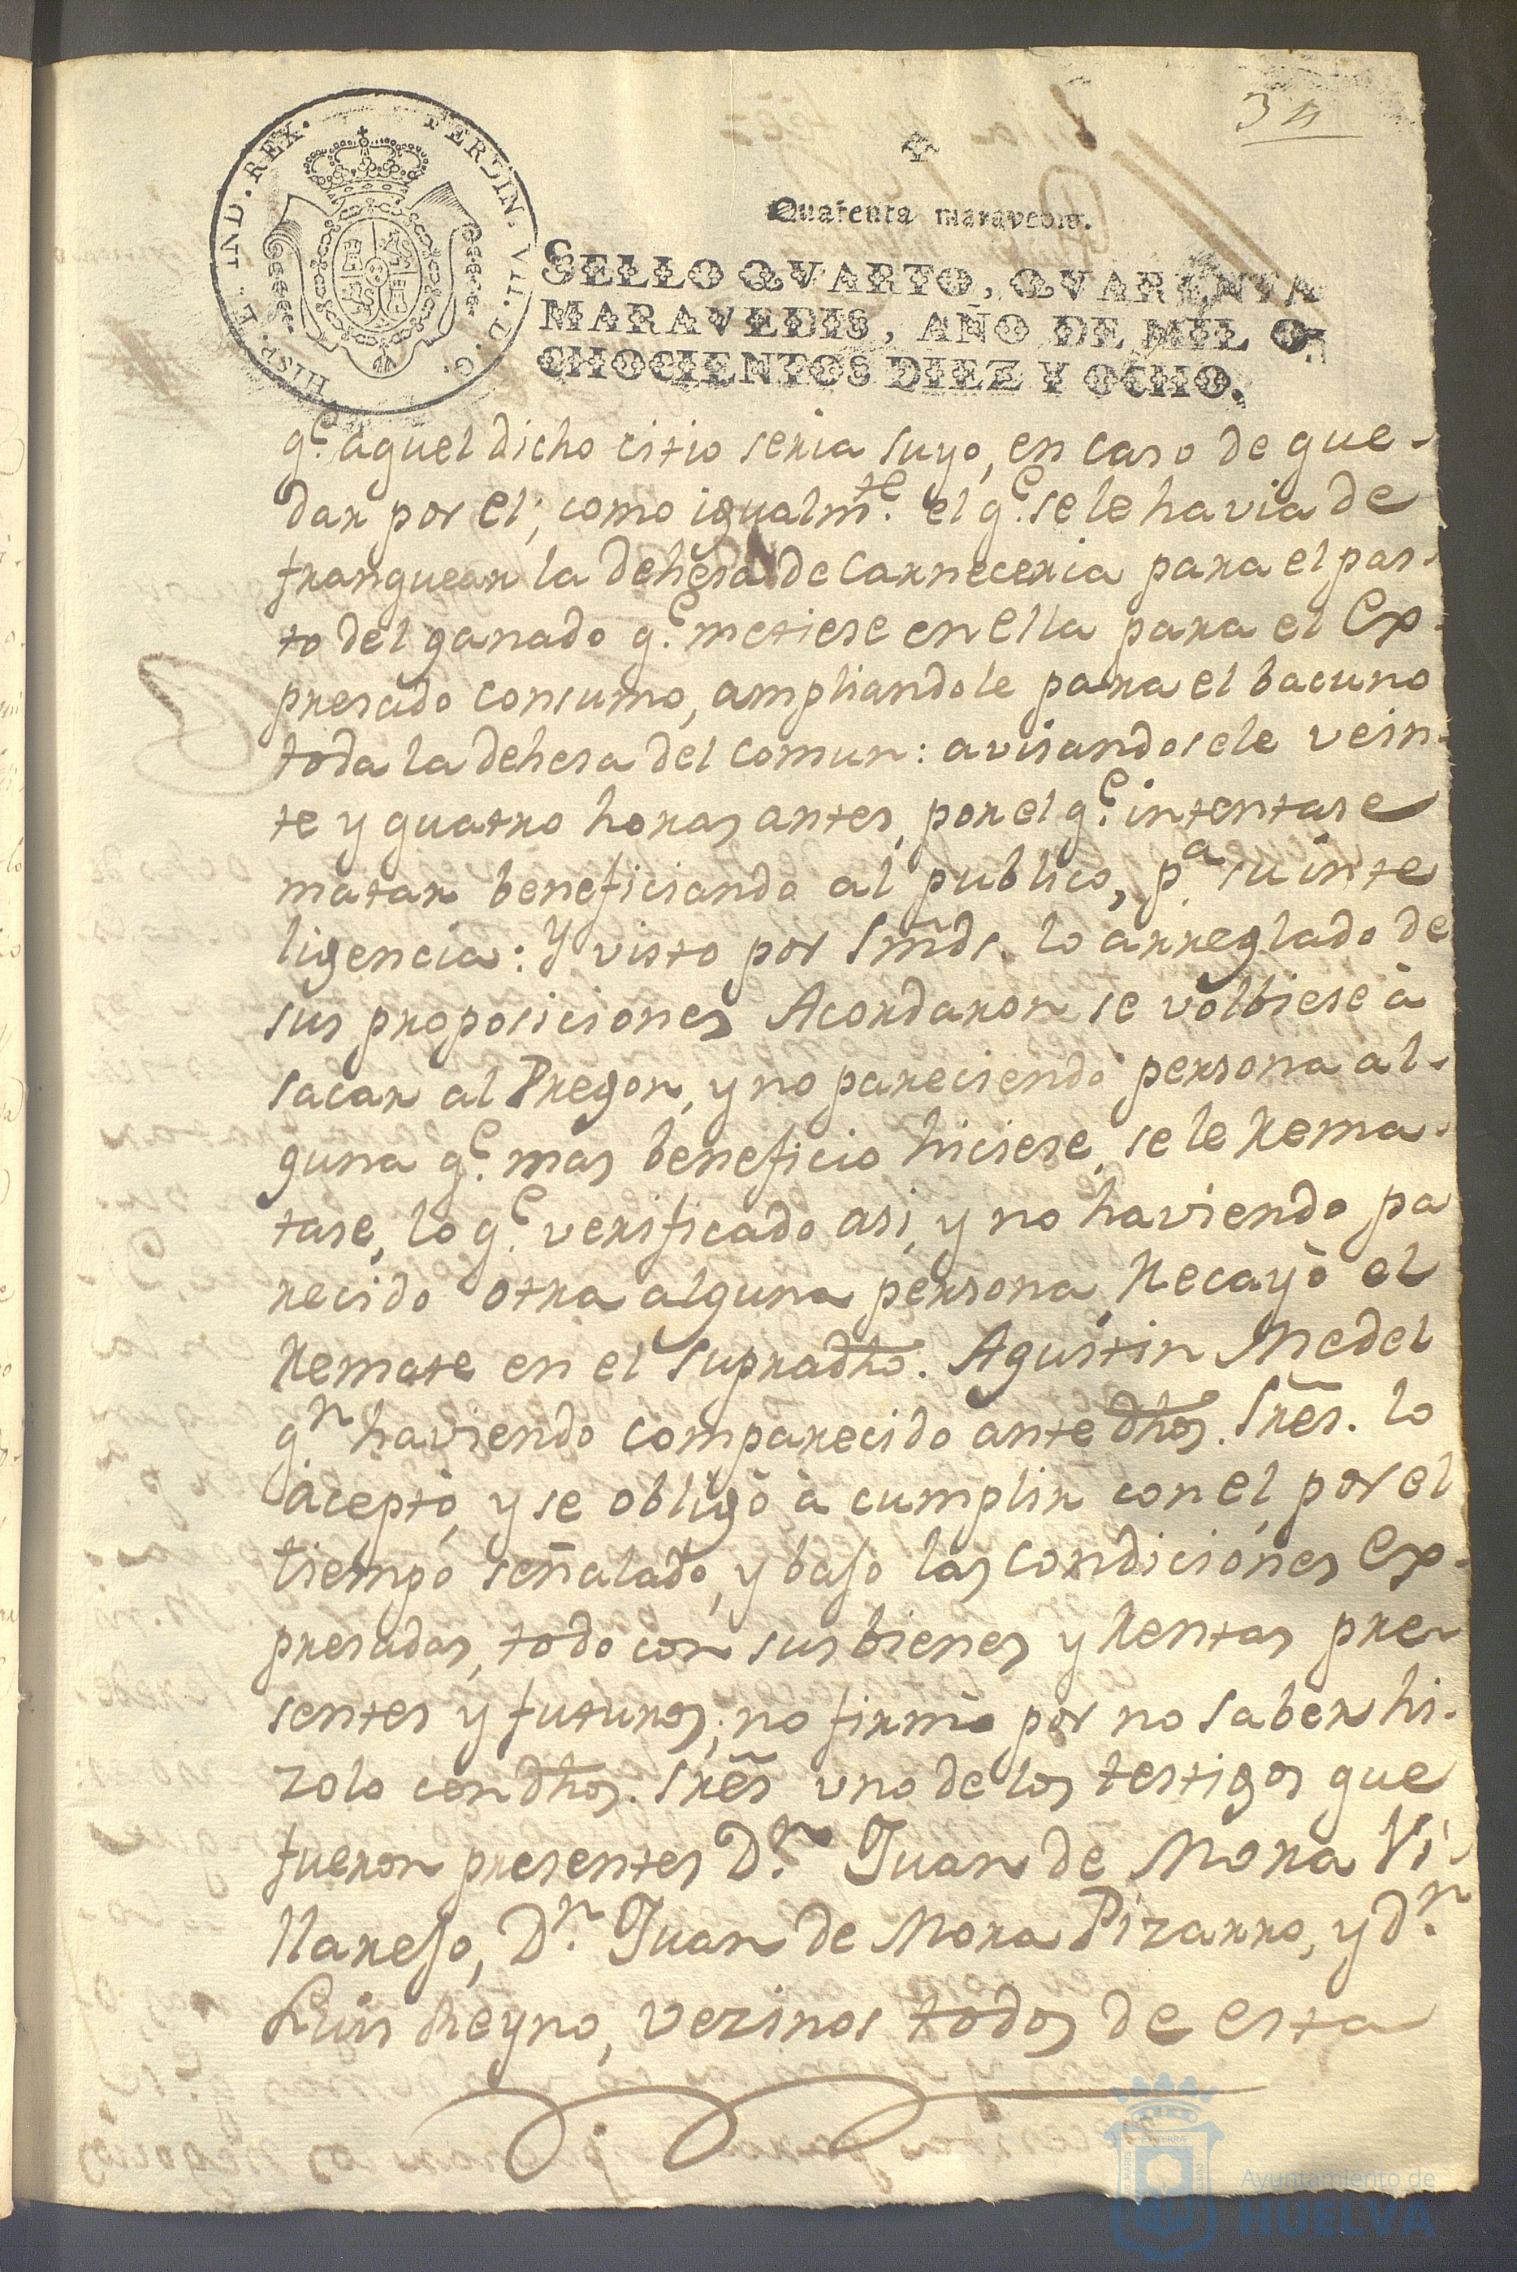 34
HISP. ET IND. REX. FERDIN. VII. D. G.
Quarenta maravedis.
SELLO QVARTO, QVARENTA
MARAVEDIS, AÑO DE MIL O-
CHOCIENTOS DIEZ Y OCHO.
q.e aquel dicho citio seria suyo, en caso de que-
dar por el; como igualm.te el q.e se le havia de
franquear la dehesa de Carneceria para el pas-
to del ganado q.e metiese en ella para el Ex-
presado consumo, ampliandole para el bacuno
toda la dehesa del comun: avisandosele vein-
te y quatro horas antes, por el q.e intentase
matar beneficiando al publico, p.a su inte
ligencia: Y visto por Smds. lo arreglado de
sus proposiciones Acordaron se volbiese à
sacar al Pregon, y no pareciendo persona al-
guna q.e mas beneficio hiciese, se le Rema-
tase, lo q.e verificado asi, y no haviendo pa
recido otra alguna persona, Recayò el
Remate en el supradho. Agustin Medel
q.n haviendo comparecido ante dhos. Sres. lo
aceptò, y se obligò à cumplir con el, por el
tiempo señalado, y bajo las condiciones Ex-
presadas, todo con sus bienes y Rentas pre-
sentes y futuros; no firmò por no saber hi-
zolo con dhos. Sres uno de los testigos que
fueron presentes D.n Juan de Mora Vi-
llarejo, D.n Juan de Mora Pizarro, y d.n
Luis Reyno, vezinos todos de esta
Ayuntamiento de
HUELVA